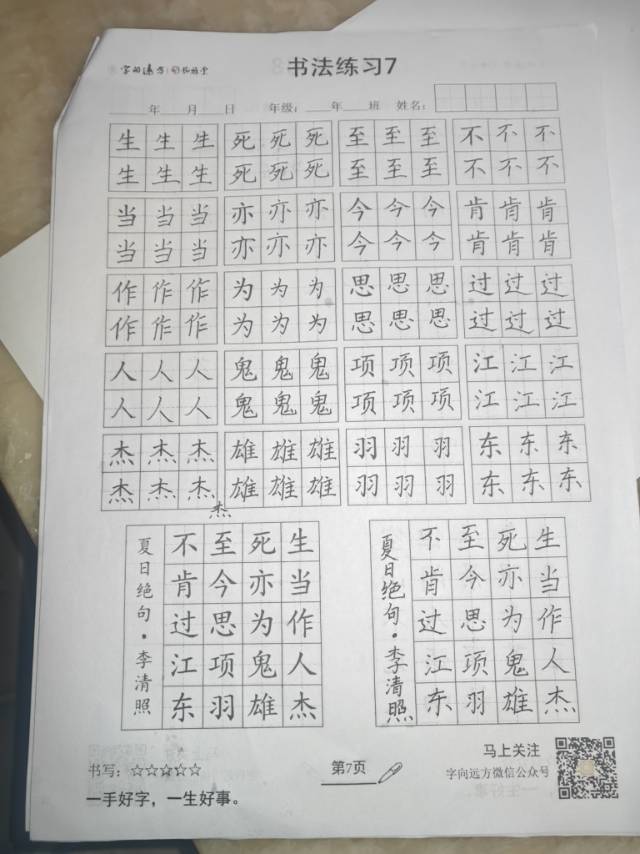 字向远方
书法练习7
年 月 日 年级: 年 班 姓名:
生生生 死死死 至至至 不不不
生生生 死死死 至至至 不不不
当当当 亦亦亦 今今今 肯肯肯
当当当 亦亦亦 今今今 肯肯肯
作作作 为为为 思思思 过过过
作作作 为为为 思思思 过过过
人人人 鬼鬼鬼 项项项 江江江
人人人 鬼鬼鬼 项项项 江江江
杰杰杰 雄雄雄 羽羽羽 东东东
杰杰杰 雄雄雄 羽羽羽 东东东
杰
生当作人杰
死亦为鬼雄
至今思项羽
不肯过江东
夏日绝句·李清照
生当作人杰
死亦为鬼雄
至今思项羽
不肯过江东
夏日绝句·李清照
书写:☆☆☆☆☆
一手好字，一生好事。
第7页
马上关注
字向远方微信公众号